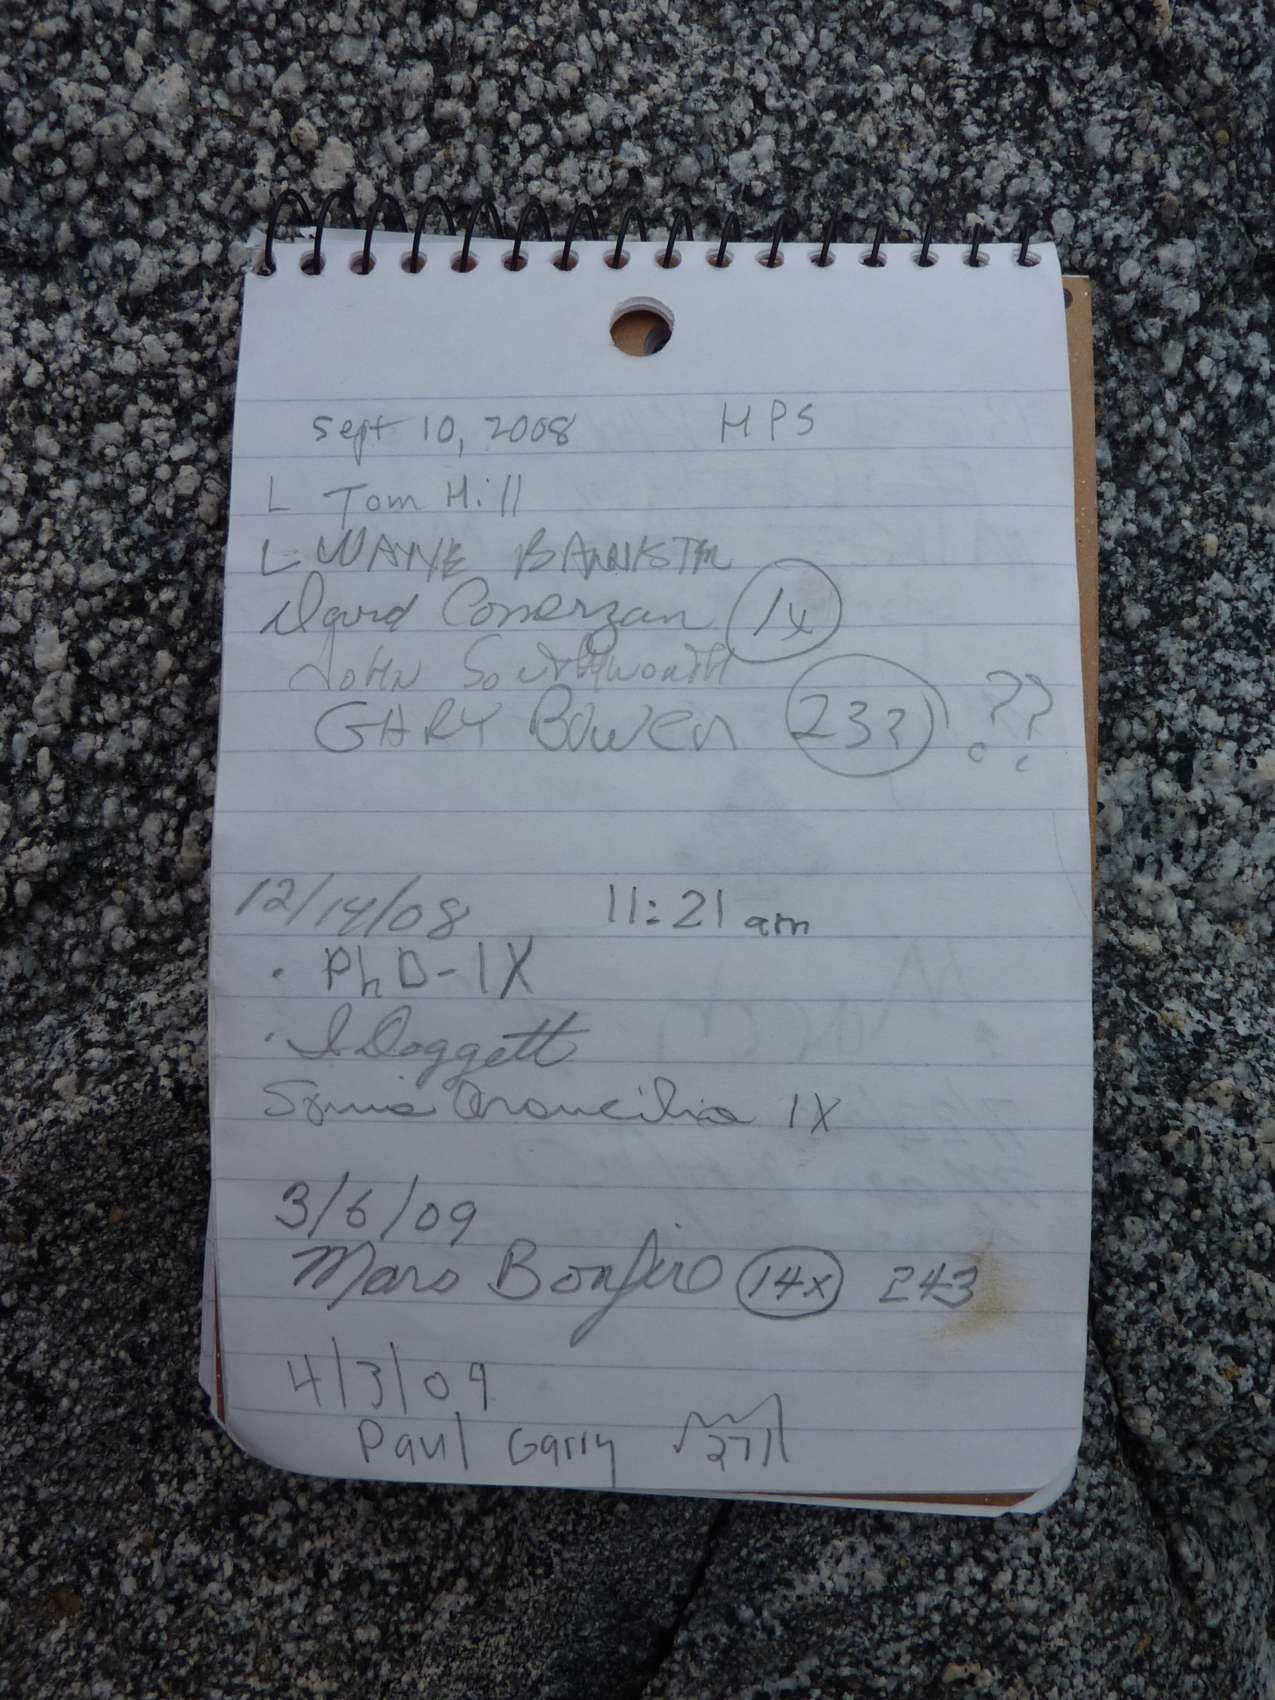 Sept 10, 2008 HPS
L Tom Hill
L WAYNE BANNISTER
David Comerzan 1x
JOHN Southworth
GARY Bowen 23? ??
12/14/08 11:21 am
· PhD-1X
· I Doggett
Sonia 1X
3/6/09
Mars Bonfire 14x 243
4/3/09
Paul Garry 271